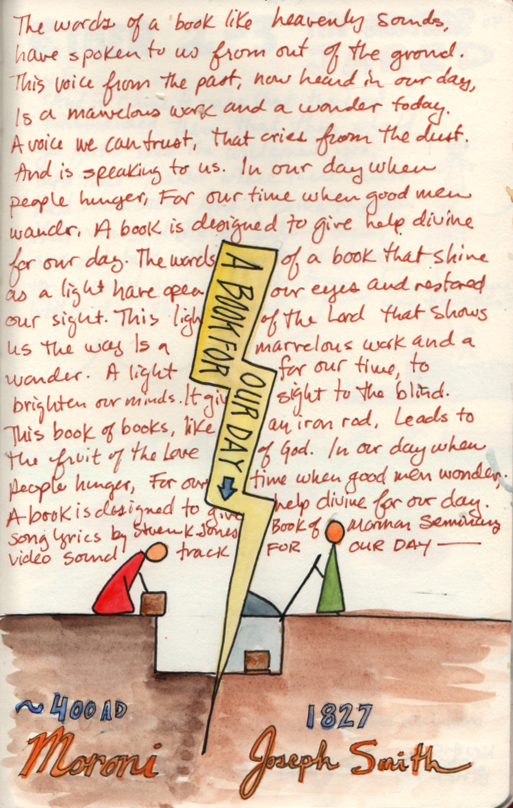 The words of a book like heavenly sounds,
have spoken to us from out of the ground.
This voice from the past, now heard in our day,
Is a marvelous work and a wonder today.
A voice we can trust, that cries from the dust.
And is speaking to us. In our day when
people hunger, For our time when good men
wander, A book is designed to give help divine
for our day. The words of a book that shine
as a light have open our eyes and restored
our sight. This light of the Lord that shows
us the way Is a marvelous work and a
wonder. A light for our time, to
brighten our minds. It giv sight to the blind.
This book of books, like an iron rod, Leads to
the fruit of the Love of God. In our day when
people hunger, For our time when good men wonder.
A book is designed to give help divine for our day.
song lyrics by Steven K Jones Book of Mormon Seminary
video sound track FOR OUR DAY —
A BOOK FOR
OUR DAY
~ 400 AD
Moroni
1827
Joseph Smith